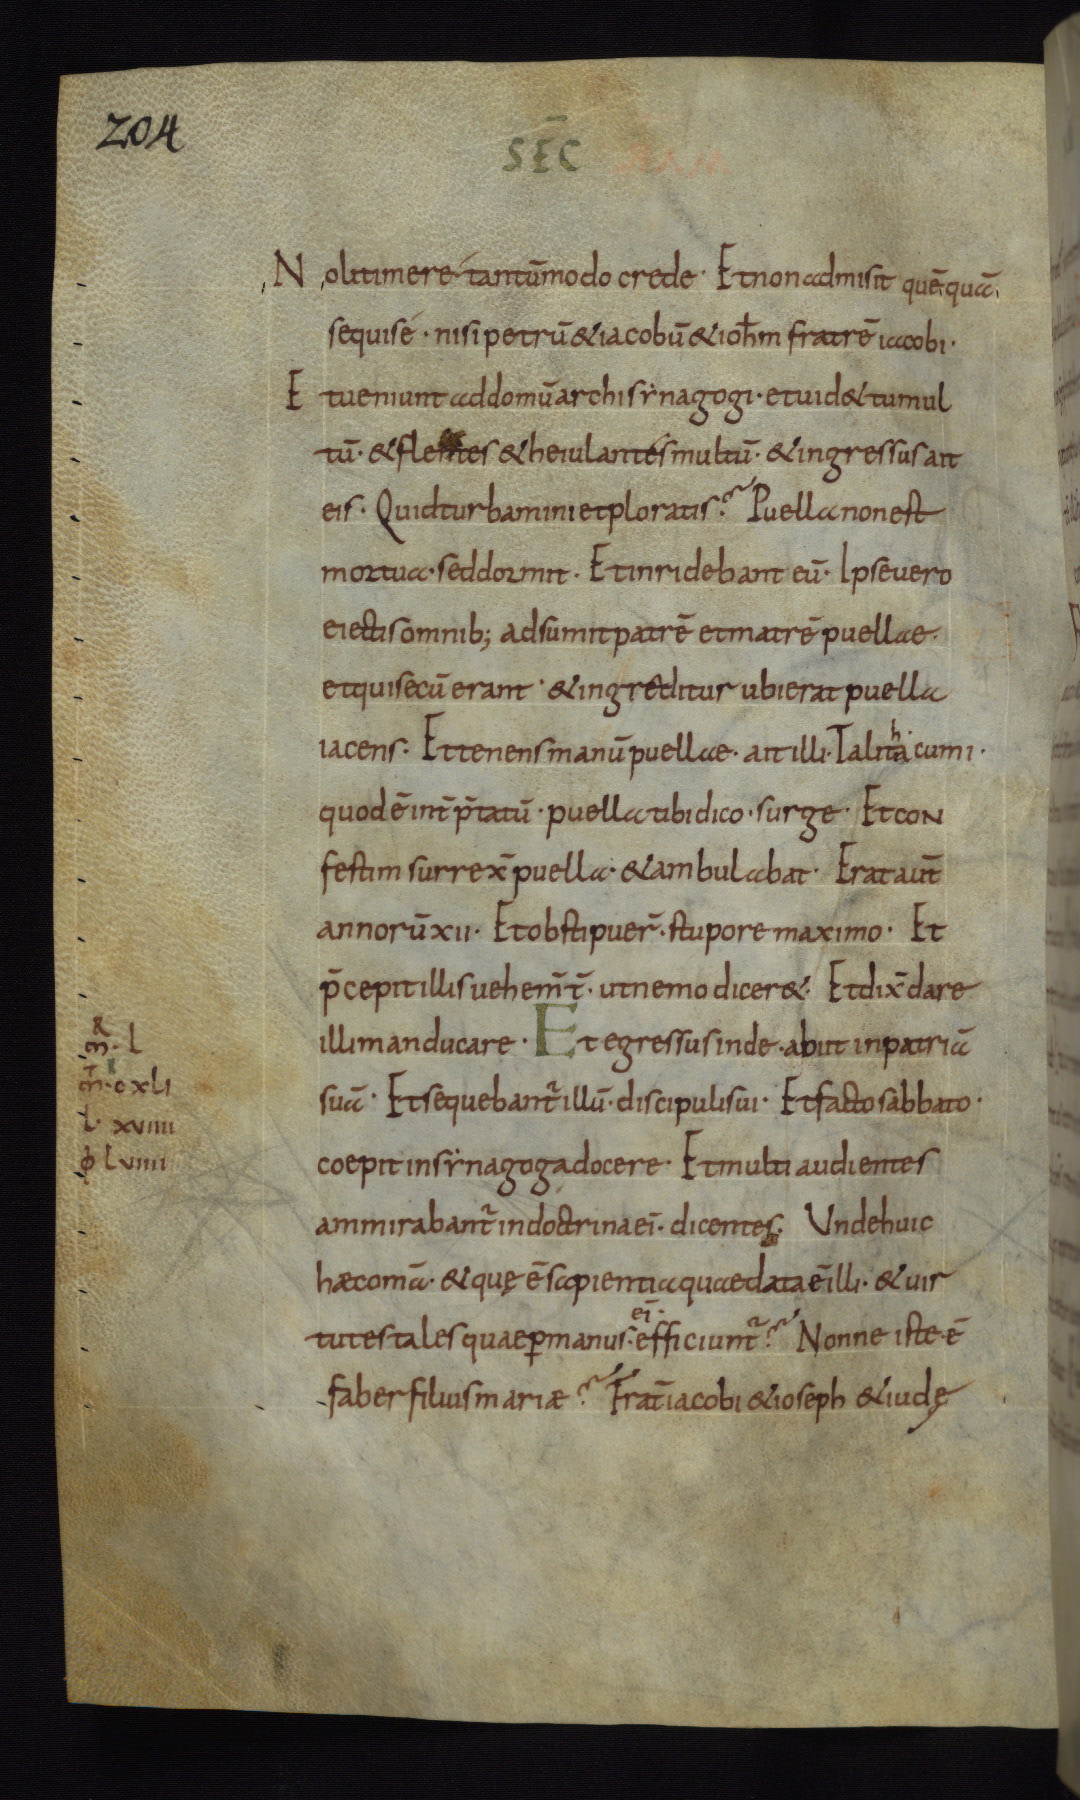 204
SEC̄ MAR.
Noli timere tantūmodo crede· Et non admisit quēquā
sequi se· nisi petrū & iacobū & ioħm fratrē iacobi·
Et ueniunt ad domū archisẏnagogi· et uid& tumul
tū· & flentes & heiulantes multū· & ingressus ait
eis· Quid turbamini et ploratis? Puella non est
mortua· sed dormit· Et inridebant eū· Ipse uero
eiectis omnib; adsumit patrē et matrē puellae·
et qui secū erant· & ingreditur ubi erat puella
iacens· Et tenens manū puellae· ait illi· Talitha cumi·
quod ē int̄p̄tatū· puella tibi dico· surge· Et con
festim surrex̄ puella· & ambulabat· Erat aut̄
annorū xii· Et obstipuer̄· stupore maximo· Et
p̄cepit illis uehem̄t̄· ut nemo dicer&· Et dix̄ dare
illi manducare· Et egressus inde· abiit in patriā
R
m̄· L
suā· Et sequebant̄ illū· discipuli sui· Et facto sabbato·
m̄· cxli
L· xviiii
coepit in sẏnagoga docere· Et multi audientes
ϕ Lviiii
ammirabant̄ in doctrina ei᷒· dicentes; Unde huic
haec om̄a· & quę ē sapientia quae data ē illi· & uir
tutes tales quae ꝑ manus ei᷒· efficiunt̄? Nonne iste· ē
faber filius mariæ? Frat̄ iacobi & ioseph & iudę